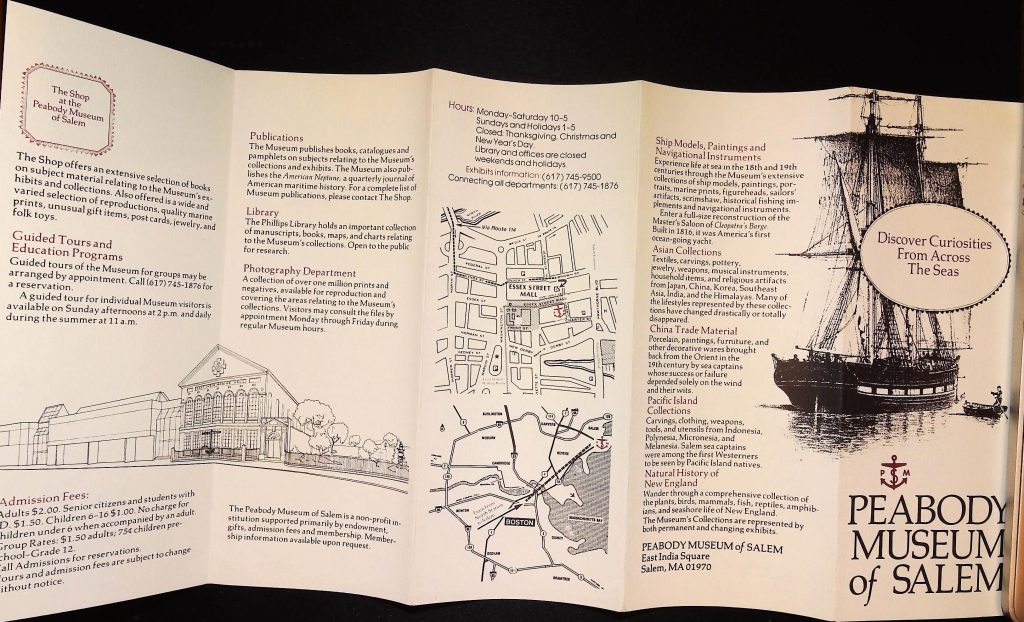 The Shop
at the
Peabody Museum
of Salem
The Shop offers an extensive selection of books
on subject material relating to the Museum's ex-
hibits and collections. Also offered is a wide and
varied selection of reproductions, quality marine
prints, unusual gift items, post cards, jewelry, and
folk toys.
Guided Tours and
Education Programs
Guided tours of the Museum for groups may be
arranged by appointment. Call (617) 745-1876 for
a reservation.
A guided tour for individual Museum visitors is
available on Sunday afternoons at 2 p.m. and daily
during the summer at 11 a.m.
Admission Fees:
Adults $2.00. Senior citizens and students with
I.D. $1.50. Children 6–16 $1.00. No charge for
children under 6 when accompanied by an adult.
Group Rates: $1.50 adults; 75¢ children pre-
school–Grade 12.
Call Admissions for reservations.
Tours and admission fees are subject to change
without notice.
Publications
The Museum publishes books, catalogues and
pamphlets on subjects relating to the Museum's
collections and exhibits. The Museum also pub-
lishes the American Neptune, a quarterly journal of
American maritime history. For a complete list of
Museum publications, please contact The Shop.
Library
The Phillips Library holds an important collection
of manuscripts, books, maps, and charts relating
to the Museum's collections. Open to the public
for research.
Photography Department
A collection of over one million prints and
negatives, available for reproduction and
covering the areas relating to the Museum's
collections. Visitors may consult the files by
appointment Monday through Friday during
regular Museum hours.
The Peabody Museum of Salem is a non-profit in-
stitution supported primarily by endowment,
gifts, admission fees and membership. Member-
ship information available upon request.
Hours: Monday-Saturday 10-5
Sundays and Holidays 1-5
Closed: Thanksgiving, Christmas and
New Year's Day.
Library and offices are closed
weekends and holidays.
Exhibits information: (617) 745-9500
Connecting all departments: (617) 745-1876
Via Route 114
FEDERAL ST
ESSEX STREET
MALL
ESSEX ST
BURLINGTON
DANVERS
SALEM
WOBURN
REVERE
CAMBRIDGE
NEWTON
BOSTON
MASSACHUSETTS BAY
DEDHAM
QUINCY
BRAINTREE
Ship Models, Paintings and
Navigational Instruments
Experience life at sea in the 18th and 19th
centuries through the Museum's extensive
collections of ship models, paintings, por-
traits, marine prints, figureheads, sailors'
artifacts, scrimshaw, historical fishing im-
plements and navigational instruments.
Enter a full-size reconstruction of the
Master's Saloon of Cleopatra's Barge.
Built in 1816, it was America's first
ocean-going yacht.
Asian Collections
Textiles, carvings, pottery,
jewelry, weapons, musical instruments,
household items, and religious artifacts
from Japan, China, Korea, Southeast
Asia, India, and the Himalayas. Many of
the lifestyles represented by these collec-
tions have changed drastically or totally
disappeared.
China Trade Material
Porcelain, paintings, furniture, and
other decorative wares brought
back from the Orient in the
19th century by sea captains
whose success or failure
depended solely on the wind
and their wits.
Pacific Island
Collections
Carvings, clothing, weapons,
tools, and utensils from Indonesia,
Polynesia, Micronesia, and
Melanesia. Salem sea captains
were among the first Westerners
to be seen by Pacific Island natives.
Natural History of
New England
Wander through a comprehensive collection of
the plants, birds, mammals, fish, reptiles, amphib-
ians, and seashore life of New England.
The Museum's Collections are represented by
both permanent and changing exhibits.
PEABODY MUSEUM of SALEM
East India Square
Salem, MA 01970
Discover Curiosities
From Across
The Seas
P M
S
PEABODY
MUSEUM
of SALEM